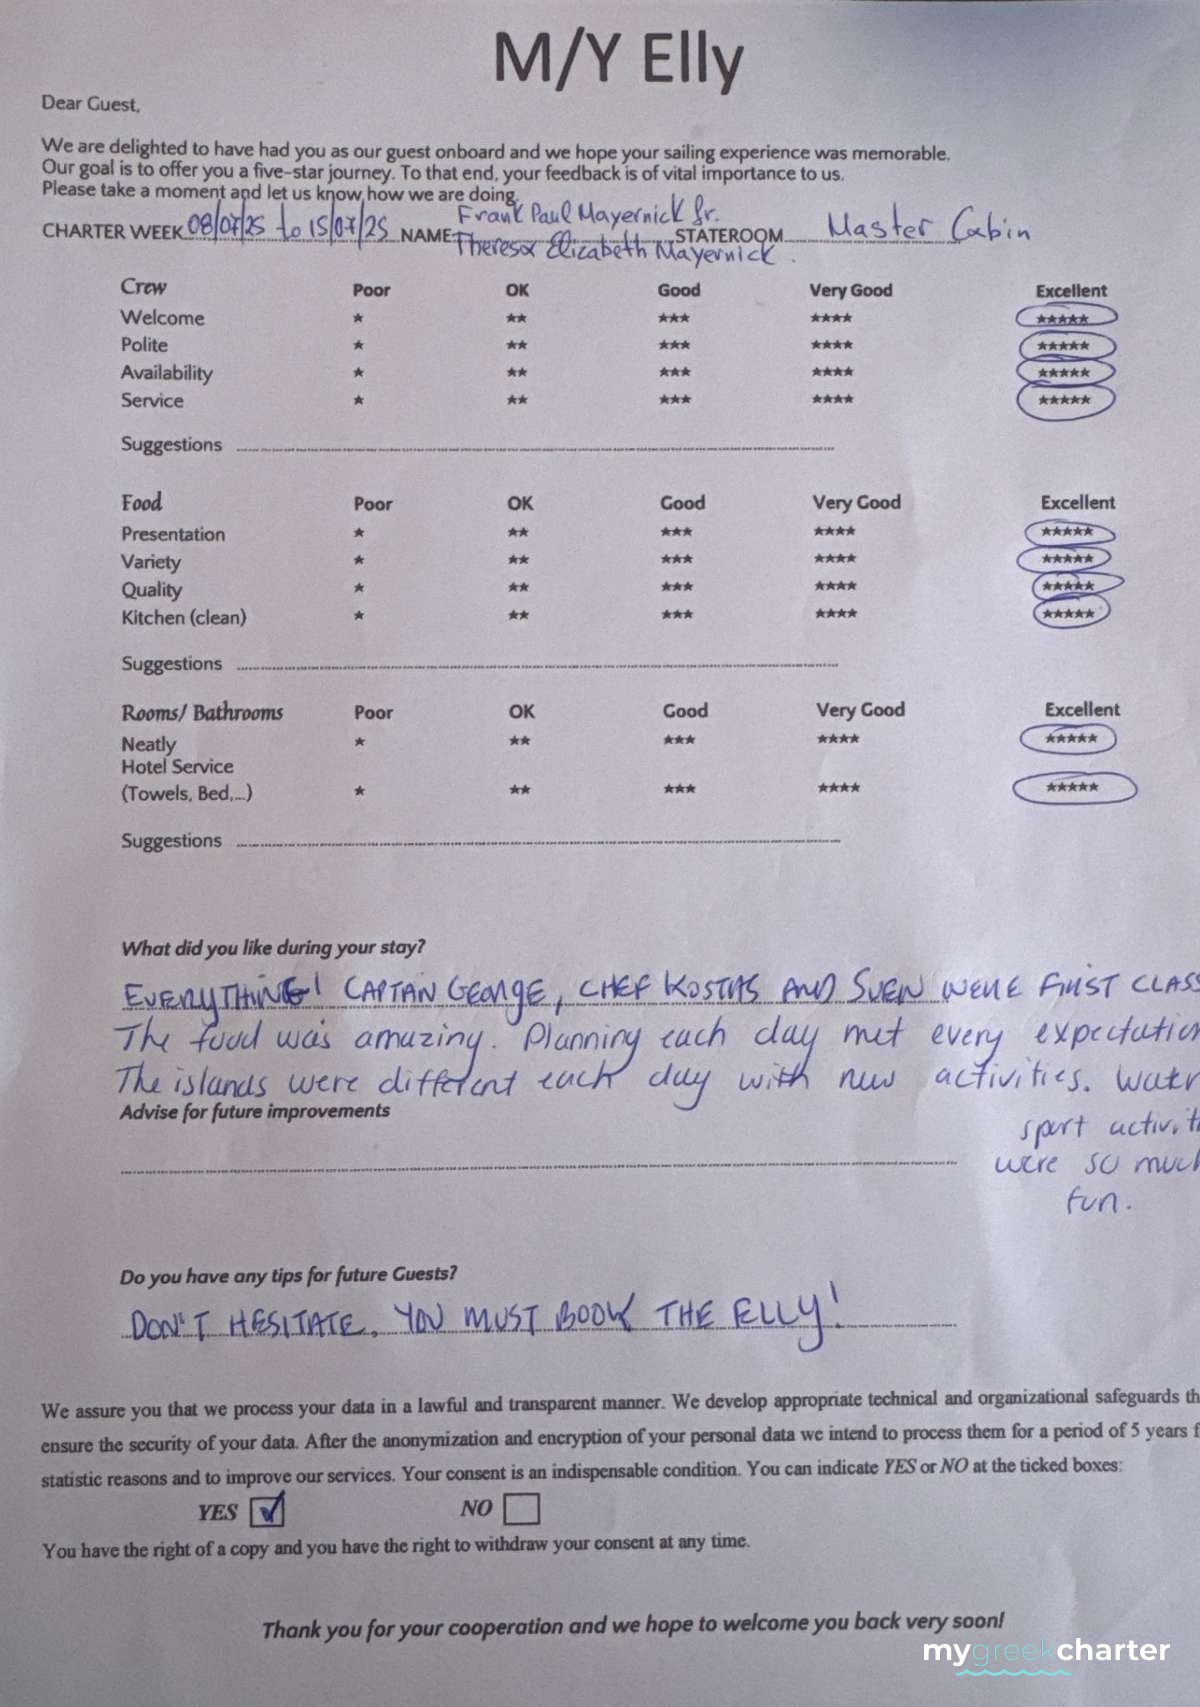 M/Y Elly
Dear Guest,
We are delighted to have had you as our guest onboard and we hope your sailing experience was memorable.
Our goal is to offer you a five-star journey. To that end, your feedback is of vital importance to us.
Please take a moment and let us know how we are doing.
CHARTER WEEK 08/07/25 to 15/07/25 NAME Frank Paul Mayernick Jr. STATEROOM Master Cabin
Theresa Elizabeth Mayernick.
Crew Poor OK Good Very Good Excellent
Welcome ★ ★★ ★★★ ★★★★ ★★★★★
Polite ★ ★★ ★★★ ★★★★ ★★★★★
Availability ★ ★★ ★★★ ★★★★ ★★★★★
Service ★ ★★ ★★★ ★★★★ ★★★★★
Suggestions
Food Poor OK Good Very Good Excellent
Presentation ★ ★★ ★★★ ★★★★ ★★★★★
Variety ★ ★★ ★★★ ★★★★ ★★★★★
Quality ★ ★★ ★★★ ★★★★ ★★★★★
Kitchen (clean) ★ ★★ ★★★ ★★★★ ★★★★★
Suggestions
Rooms/ Bathrooms Poor OK Good Very Good Excellent
Neatly ★ ★★ ★★★ ★★★★ ★★★★★
Hotel Service
(Towels, Bed,...) ★ ★★ ★★★ ★★★★ ★★★★★
Suggestions
What did you like during your stay?
EVERYTHING! CAPTAN GEORGE, CHEF KOSTAS AND SVEN WERE FIRST CLASS
The food was amazing. Planning each day met every expectation
The islands were different each day with new activities. Water
Advise for future improvements
sport activiti
were so much
fun.
Do you have any tips for future Guests?
DON'T HESITATE, YOU MUST BOOK THE ELLY!
We assure you that we process your data in a lawful and transparent manner. We develop appropriate technical and organizational safeguards th
ensure the security of your data. After the anonymization and encryption of your personal data we intend to process them for a period of 5 years f
statistic reasons and to improve our services. Your consent is an indispensable condition. You can indicate YES or NO at the ticked boxes:
YES NO
You have the right of a copy and you have the right to withdraw your consent at any time.
Thank you for your cooperation and we hope to welcome you back very soon!
mygreekcharter